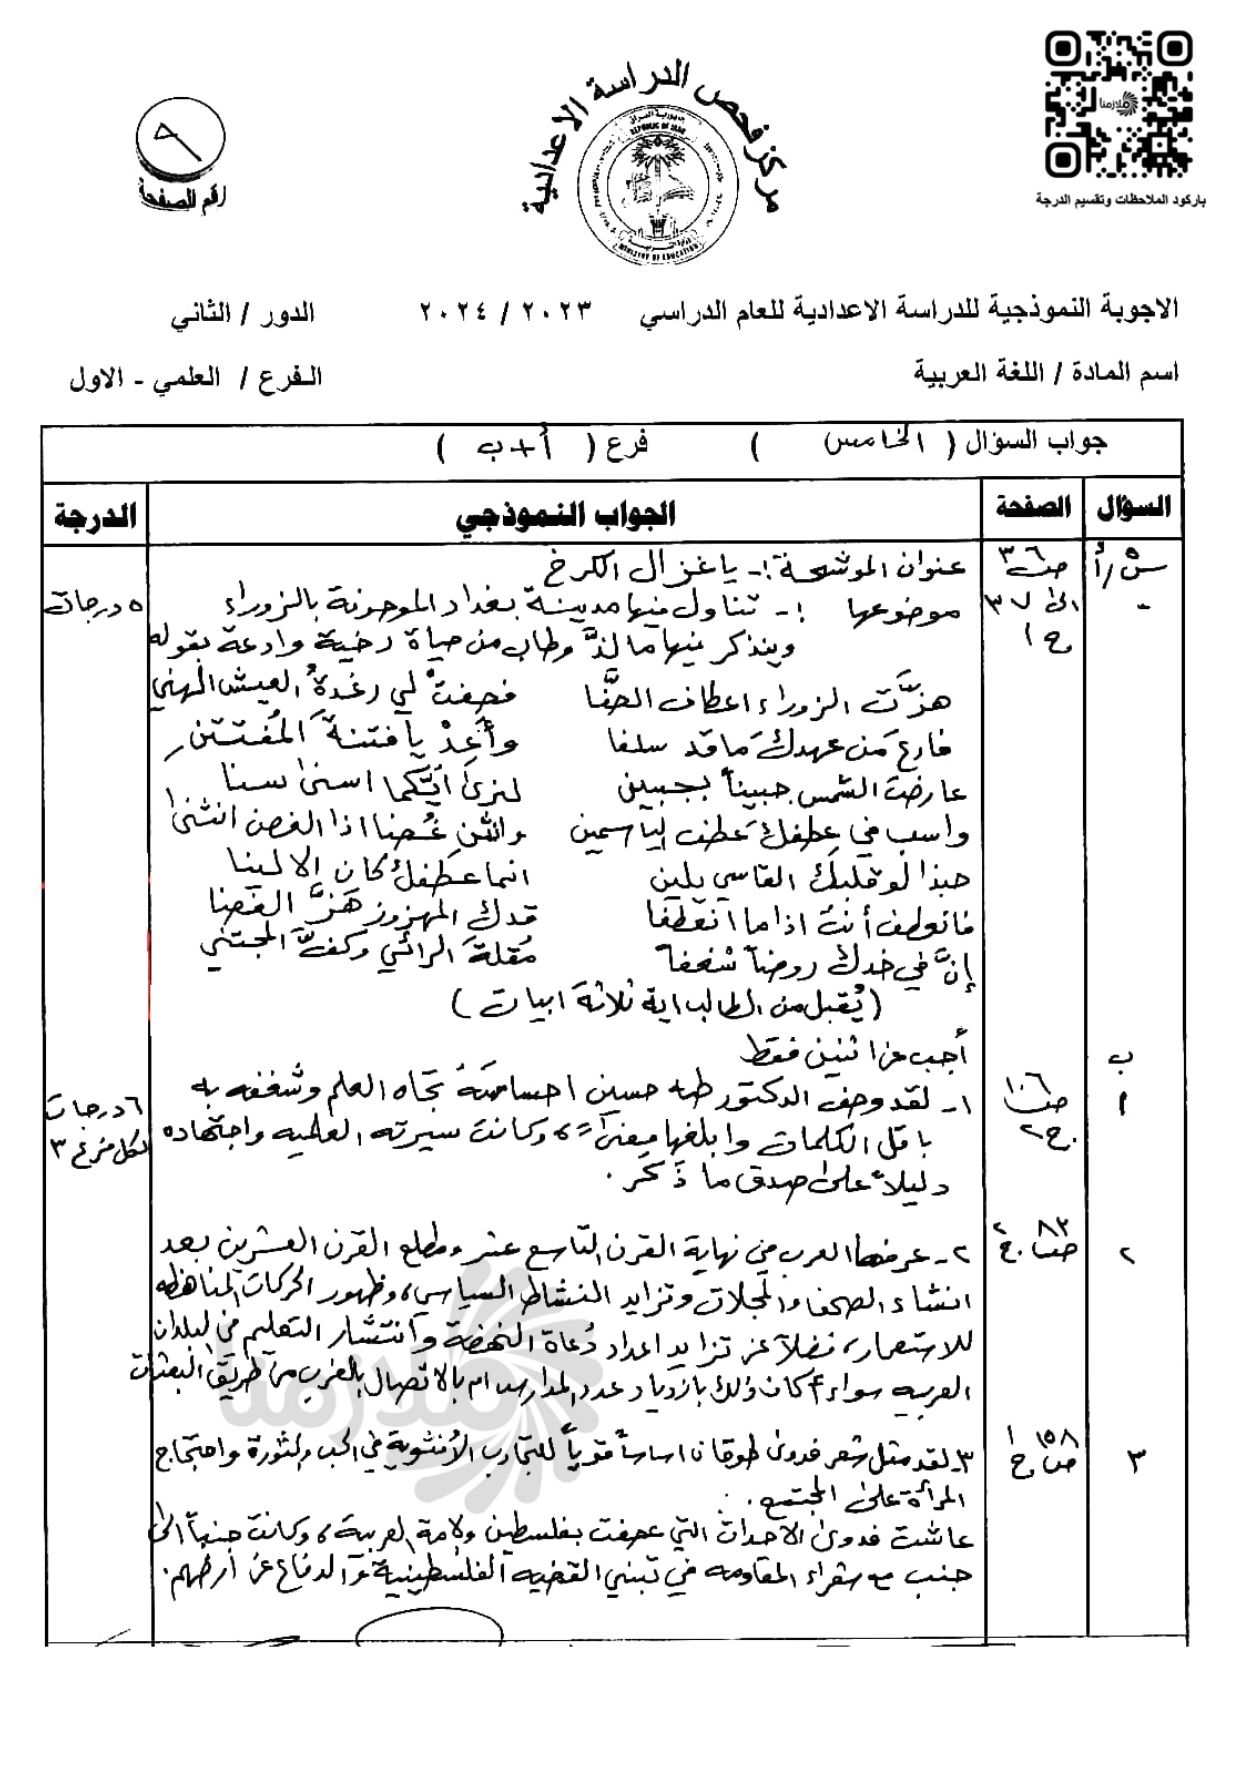 مركز فحص الدراسة الاعدادية
REPUBLIC OF IRAQ
MINISTRY OF EDUCATION
ملازمنا
باركود الملاحظات وتقسيم الدرجة
٩
رقم الصفحة
الاجوبة النموذجية للدراسة الاعدادية للعام الدراسي ٢٠٢٣ / ٢٠٢٤ الدور / الثاني
اسم المادة / اللغة العربية الفرع / العلمي - الاول
جواب السؤال ( الخامس ) فرع ( أ + ب )
السؤال الصفحة الجواب النموذجي الدرجة
س٥/أ ص٣٦ عنوان الموشحة :- يا غزال الكرخ
- الى ٣٧ موضوعها :- تناول فيها مدينة بغداد الموحونة بالزوراء ٥ درجات
ج١ ويتذكر فيها ما لذَّ وطاب من حياة رخية وادعة بقوله
هزَّت الزوراء اعطاف الصَّفا فصفتْ لي رغدةُ العيش الهني
فارعَ من عهدكَ ما قد سلفا وأعِدْ يا فتنةَ المُفتتنِ
عارضت الشمس جبيناً بجبين لنرى ايَّكما اسنى سنا
واسب في عطفكَ عطف الياسمين وانثنِ غُصناً اذا الغصن انثنى
حبذا لو قلبك القاسي يلين انما عطفك كان الالينا
فانعطف أنت اذا ما انعطفا قدك المهزوز هزَّ الغصنا
إنَّ في خدك روضاً شغفاً مُقلةَ الرائي وكفَّ المجتني
(يُقبل من الطالب اية ثلاثة ابيات)
ب أجب عن اثنين فقط
١ ص١٠٦ ج٢ ١- لقد وصف الدكتور طه حسين احساسَهُ تجاه العلم وشغفه به ٦ درجات
باقل الكلمات وابلغها معنىً، وكانت سيرته العلمية واجتهاده لكل فرع ٣
دليلاً على صدق ما ذَكَر.
٢ ص٨٣ ج٢ ٢- عرفها العرب في نهاية القرن التاسع عشر ومطلع القرن العشرين بعد
انشاء الصحف والمجلات وتزايد النشاط السياسي، وظهور الحركات المناهظه
للاستعمار، فضلاً عن تزايد اعداد دُعاة النهضة وانتشار التعليم في البلدان
العربيه سواء أكان ذلك بازدياد عدد المدارس ام بالاتصال بالغرب من طريق البعثات
٣ ص١٥٨ ج١ ٣- لقد مثل شعر فدوى طوقان اساساً قوياً للتجارب الأنثوية في الحب والثورة واحتجاج
المرأة على المجتمع.
عاشت فدوى الاحداث التي عصفت بفلسطين والامة العربية، وكانت جنباً الى
جنب مع شعراء المقاومه في تبني القضيه الفلسطينية والدفاع عن أرضهم.
ملازمنا